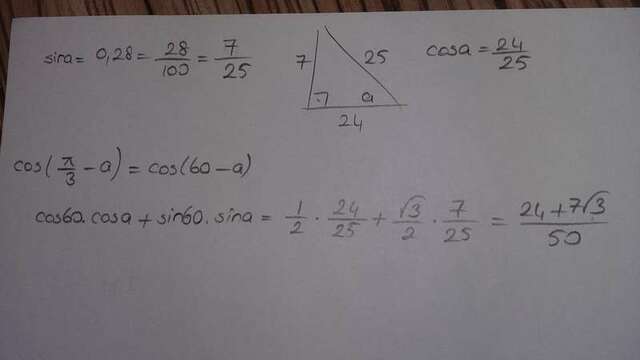 sina = 0,28 = 28/100 = 7/25
7
25
24
a
cosa = 24/25
cos(π/3 - a) = cos(60 - a)
cos60.cosa + sin60.sina = 1/2 . 24/25 + √3/2 . 7/25 = 24+7√3/50